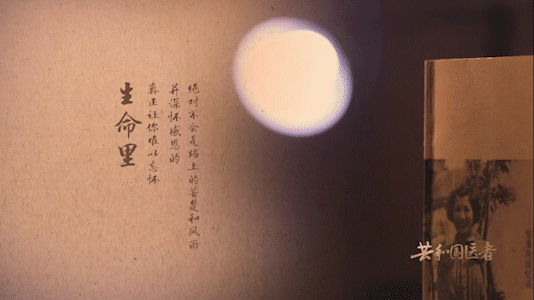 生命里
真正让你难以忘怀
并深怀感恩的
绝对不会是路上的苦楚和风雨
共和国医者